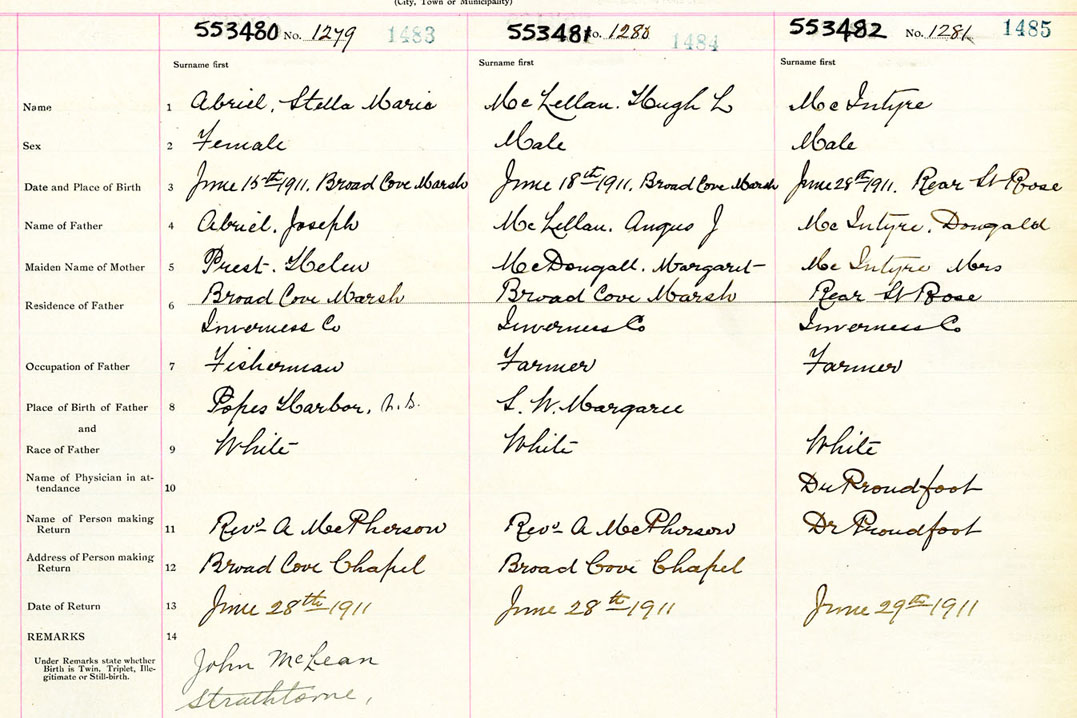 (City, Town or Municipality)
553480 No. 1279 1483 553481 No. 1280 1484 553482 No. 1281 1485
Surname first Surname first Surname first
Name 1 Abriel, Stella Marie McLellan. Hugh L McIntyre
Sex 2 Female Male Male
Date and Place of Birth 3 June 15th 1911. Broad Cove Marsh June 18th 1911. Broad Cove Marsh June 28th 1911. Rear St Rose
Name of Father 4 Abriel. Joseph McLellan. Angus J McIntyre. Dougald
Maiden Name of Mother 5 Prest. Helen McDougall. Margaret McIntyre Mrs
Residence of Father 6 Broad Cove Marsh Broad Cove Marsh Rear St Rose
Inverness Co Inverness Co Inverness Co
Occupation of Father 7 Fisherman Farmer Farmer
Place of Birth of Father 8 Popes Harbor, N.S. S. W. Margaree
and
Race of Father 9 White White White
Name of Physician in at-
tendance 10 Dr Proudfoot
Name of Person making
Return 11 Revd A McPherson Revd A McPherson Dr Proudfoot
Address of Person making
Return 12 Broad Cove Chapel Broad Cove Chapel
Date of Return 13 June 28th 1911 June 28th 1911 June 29th 1911
REMARKS 14
Under Remarks state whether
Birth is Twin, Triplet, Ille-
gitimate or Still-birth.
John McLean
Strathlorne,